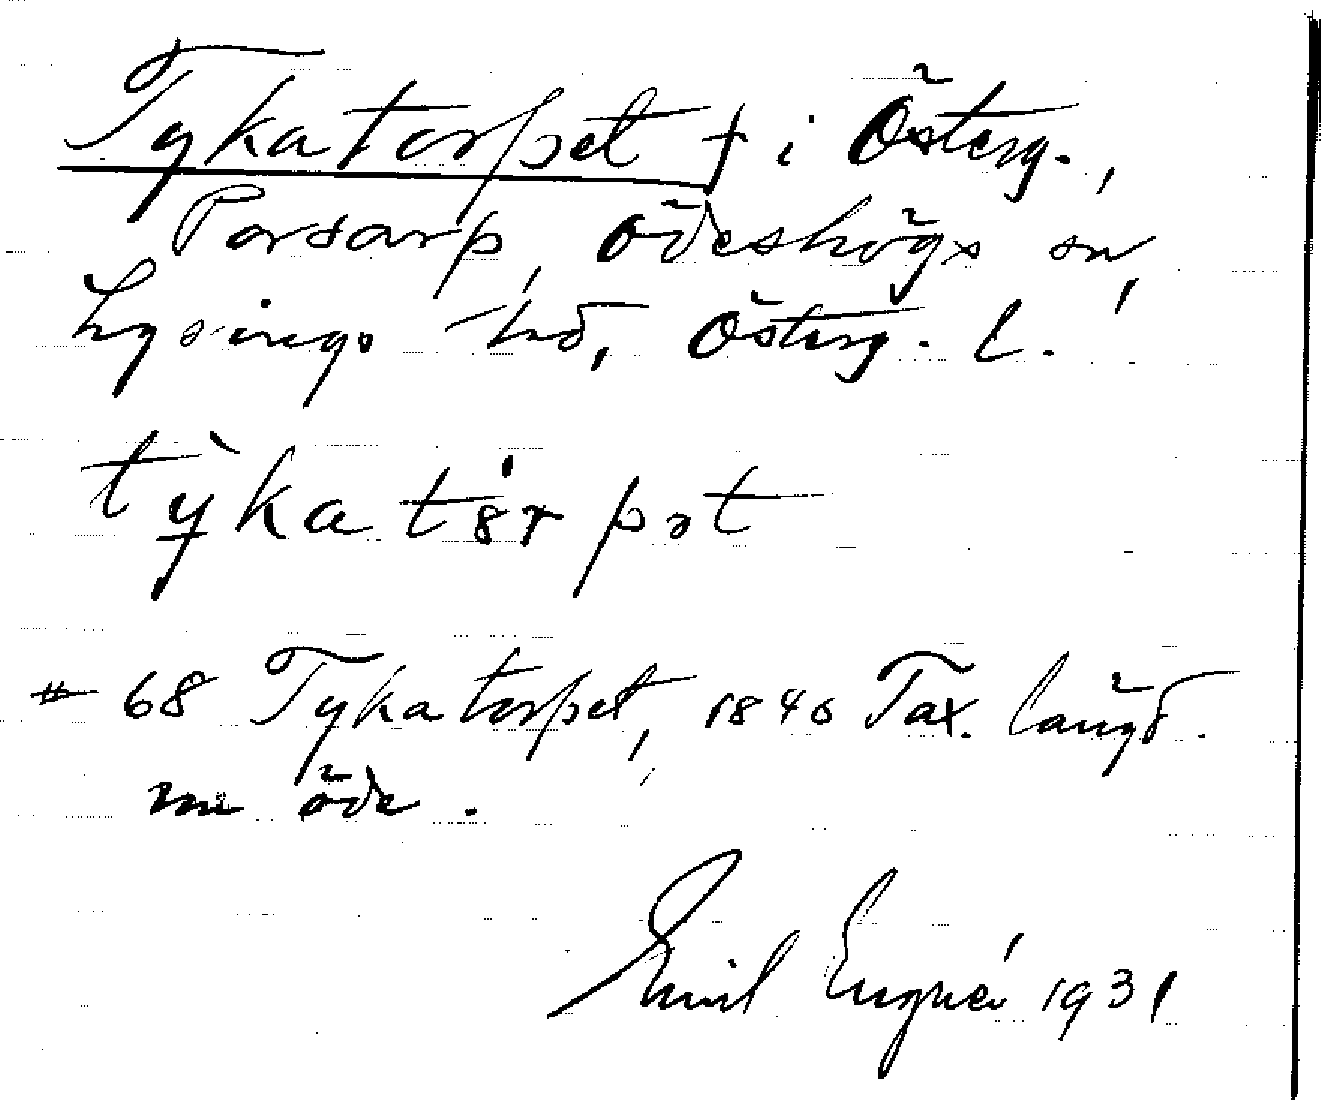 Tykatorpet † i Österg.,
Porsarp, Ödeshögs sn,
Lysings hd, Österg. l.
tỳ̠katörpət
# 68 Tykatorpet, 1840 Tax. längd.
nu öde.
Emil Engné 1931